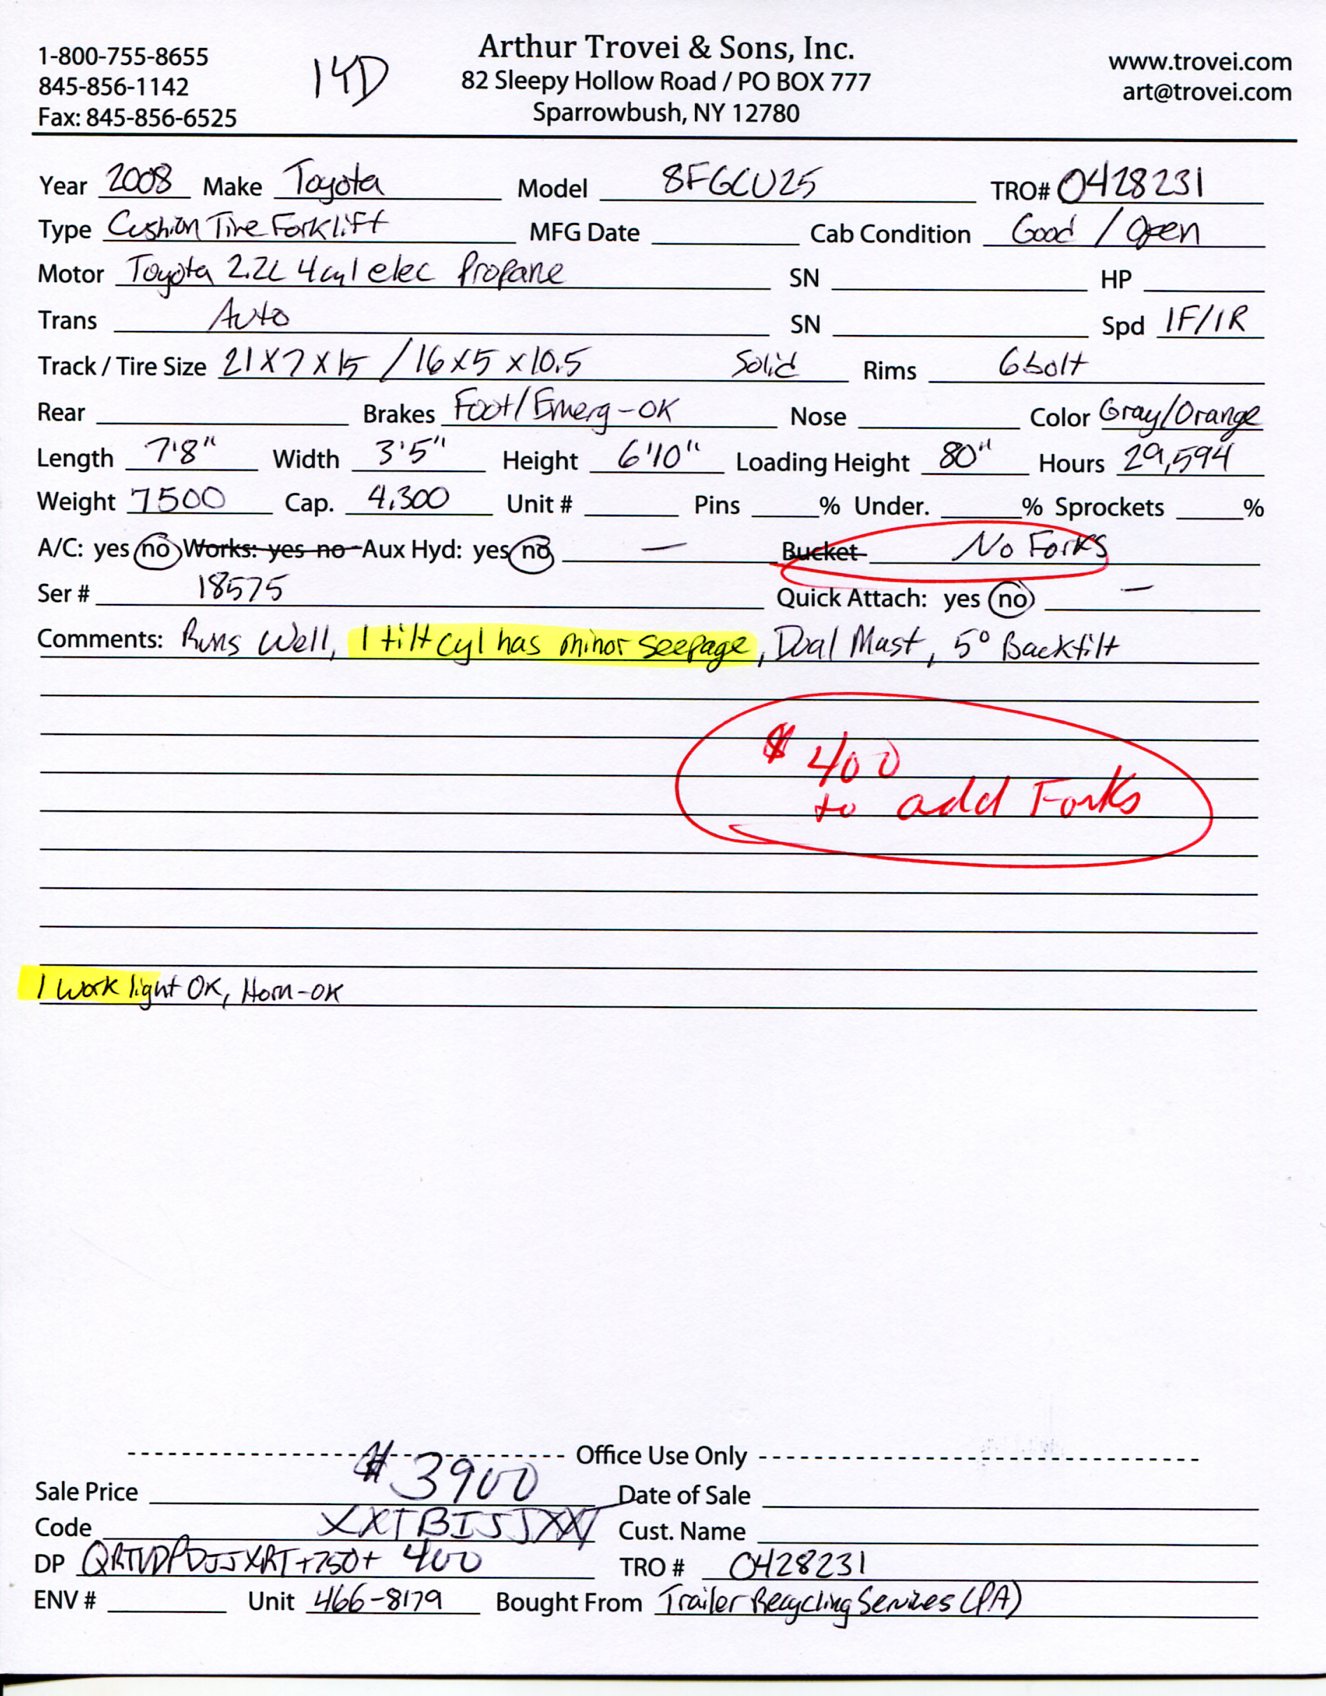 Arthur Trovei & Sons, Inc.
1-800-755-8655 www.trovei.com
14D
82 Sleepy Hollow Road / PO BOX 777
845-856-1142 art@trovei.com
Sparrowbush, NY 12780
Fax: 845-856-6525
Year 2008 Make Toyota Model 8FGCU25 TRO# 0428231
Type Cushion Tire Forklift MFG Date Cab Condition Good / Open
Motor Toyota 2.2L 4cyl elec Propane SN HP
Trans Auto SN Spd 1F/1R
Track / Tire Size 21x7x15 / 16x5x10.5 Solid Rims 6 bolt
Rear Brakes Foot/Emerg-OK Nose Color Gray/Orange
Length 7'8" Width 3'5" Height 6'10" Loading Height 80" Hours 29,594
Weight 7500 Cap. 4,300 Unit # Pins % Under. % Sprockets %
A/C: yes no Works: yes no Aux Hyd: yes no — Bucket No Forks
Ser # 18575 Quick Attach: yes no —
Comments: Runs Well, 1 tilt cyl has minor seepage, Dual Mast, 5° Backtilt
$400
to add Forks
1 work light OK, Horn-OK
Office Use Only
Sale Price $3900 Date of Sale
Code Cust. Name
DP +750+ 400 TRO # 0428231
ENV # Unit 466-8179 Bought From Trailer Recycling Services (PA)